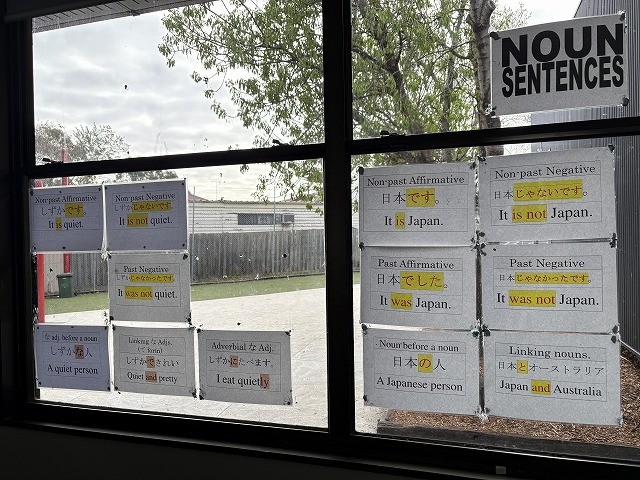 NOUN
SENTENCES
Non-past Affirmative
しずかです。
It is quiet.
Non-past Negative
しずかじゃないです。
It is not quiet.
Past Negative
しずかじゃなかったです。
It was not quiet.
な adj. before a noun
しずかな人
A quiet person
Linking な Adjs.
(て form)
しずかできれい
Quiet and pretty
Adverbial な Adj.
しずかにたべます。
I eat quietly
Non-past Affirmative
日本です。
It is Japan.
Non-past Negative
日本じゃないです。
It is not Japan.
Past Affirmative
日本でした。
It was Japan.
Past Negative
日本じゃなかったです。
It was not Japan.
Noun before a noun
日本の人
A Japanese person
Linking nouns.
日本とオーストラリア
Japan and Australia